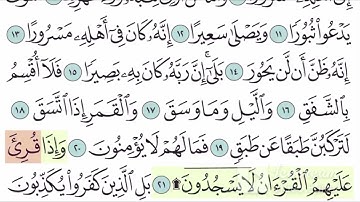 يَدْعُوا۟ ثُبُورًا ١١ وَيَصْلَىٰ سَعِيرًا ١٢ إِنَّهُۥ كَانَ فِىٓ أَهْلِهِۦ مَسْرُورًا ١٣
إِنَّهُۥ ظَنَّ أَن لَّن يَحُورَ ١٤ بَلَىٰٓ إِنَّ رَبَّهُۥ كَانَ بِهِۦ بَصِيرًا ١٥ فَلَآ أُقْسِمُ
بِٱلشَّفَقِ ١٦ وَٱلَّيْلِ وَمَا وَسَقَ ١٧ وَٱلْقَمَرِ إِذَا ٱتَّسَقَ ١٨
لَتَرْكَبُنَّ طَبَقًا عَن طَبَقٍ ١٩ فَمَا لَهُمْ لَا يُؤْمِنُونَ ٢٠ وَإِذَا قُرِئَ
عَلَيْهِمُ ٱلْقُرْءَانُ لَا يَسْجُدُونَ ۩ ٢١ بَلِ ٱلَّذِينَ كَفَرُوا۟ يُكَذِّبُونَ